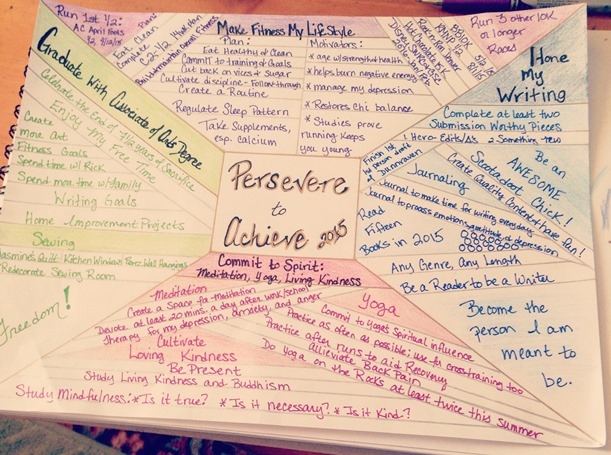 Run 1st 1/2:
AC April Fools
1/2, 4/12/15
Eat Clean
Complete
C25 1/2 Marathon
Plans
Make Fitness My Lifestyle
Plan:
Eat Healthy & Clean
Commit to training & Goals
Cut back on vices & Sugar
Cultivate discipline - Follow through
Create a Routine
Regulate Sleep Pattern
Take Supplements,
esp. calcium
Motivators:
* age w/strength & health
* helps burn negative energy
* manage my depression
* Restores Chi balance
* Studies prove
running keeps
you young
Run 3 other 10K
or longer
Races
Hone
My
Writing
Complete at least two
Submission Worthy Pieces
1 Hero-Edits/
2 Something New
Graduate With Associate of Arts Degree
Celebrate the End of 7 1/2 Years of Sacrifice
Enjoy My Free Time
Create
More Art
Fitness Goals
Spend time w/ Rick
Spend more time w/family
Writing Goals
Home Improvement Projects
Sewing
Jasmine's Quilt
Kitchen Windows
Wall Hangings
Redecorate Sewing Room
Freedom!
Persevere
to
Achieve 2015
Be an
AWESOME
Skatadoot Chick!
Create Quality Content & Have Fun!
Journaling
Journal to make time for writing everyday
Journal to process emotions, gratitude & depression
Read
Fifteen
Books in 2015
Any Genre, Any Length
Be a Reader to be a Writer
Become the
person I am
meant to
be.
Commit to Spirit:
Meditation, Yoga, Living Kindness
Meditation
Create a Space for Meditation
Devote at least 20 mins. a day after work/school
therapy for my depression, anxiety, and anger
Cultivate
Loving Kindness
Be Present
Study Living Kindness and Buddhism
Study Mindfulness: * Is it true? * Is it necessary? * Is it Kind?
Yoga
Commit to yoga's Spiritual influence
Practice as often as possible; use for crosstraining too
Practice after runs to aid Recovery
Allieviate Back Pain
Do Yoga on the Rocks at least twice this summer